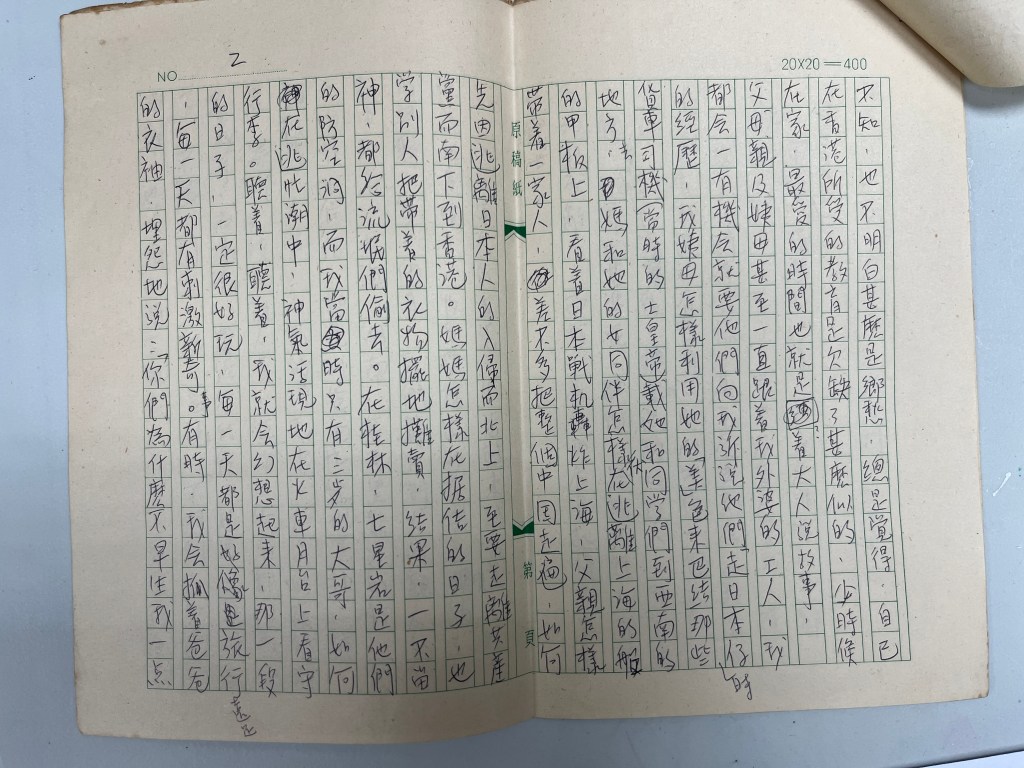 NO 2
20X20=400
不知,也不明白甚麼是鄉愁,總是覺得,自己
在香港所受的教育是欠缺了甚麼似的,少時候
在家,最愛的時間也就是 着大人說故事,
父母親及姨母甚至一直跟着我外婆的工人,我
都会一有機会就要他們向我訴說他們走日本仔的
的經歷,我姨母怎樣利用她的「美色」來巴結那些
貨車司機(當時的土皇帝)載她和同學們到西南的
地方去,媽和她的女同伴怎樣在逃離上海的船
的甲板上,看着日本戰机轟炸上海,父親怎樣
帶着一家人,差不多把整個中国走遍,如何
原稿紙
第 頁
先因逃離日本人的入侵而北上,至要走離共產
黨而南下到香港。媽媽怎樣在据佶的日子,也
学別人把帶着的衣物擺地攤賣,結果,一不留
神,都給流氓們偷去。在桂林,七星岩是他們
的防空洞,而我當時只有三岁的大哥,如何
在逃忙潮中,神氣活現地在火車月台上看守
行李。聽着,聽着,我就会幻想起來,那一段
的日子,一定很好玩,每一天都是好像 旅行遠足
,每一天都有刺激新奇事。有時,我会抓着爸爸
的衣袖,埋怨地說:「你們為什麼不早生我一点